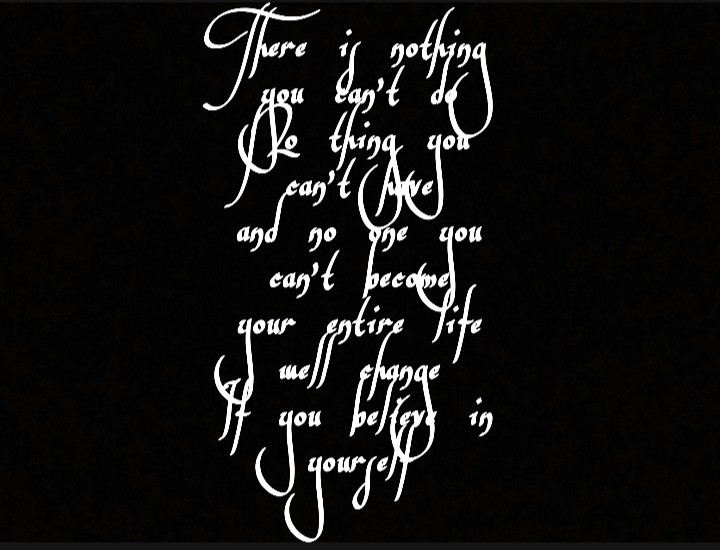 There is nothing
you can't do
No thing you
can't have
and no one you
can't become
your entire life
well change
If you believe in
yourself